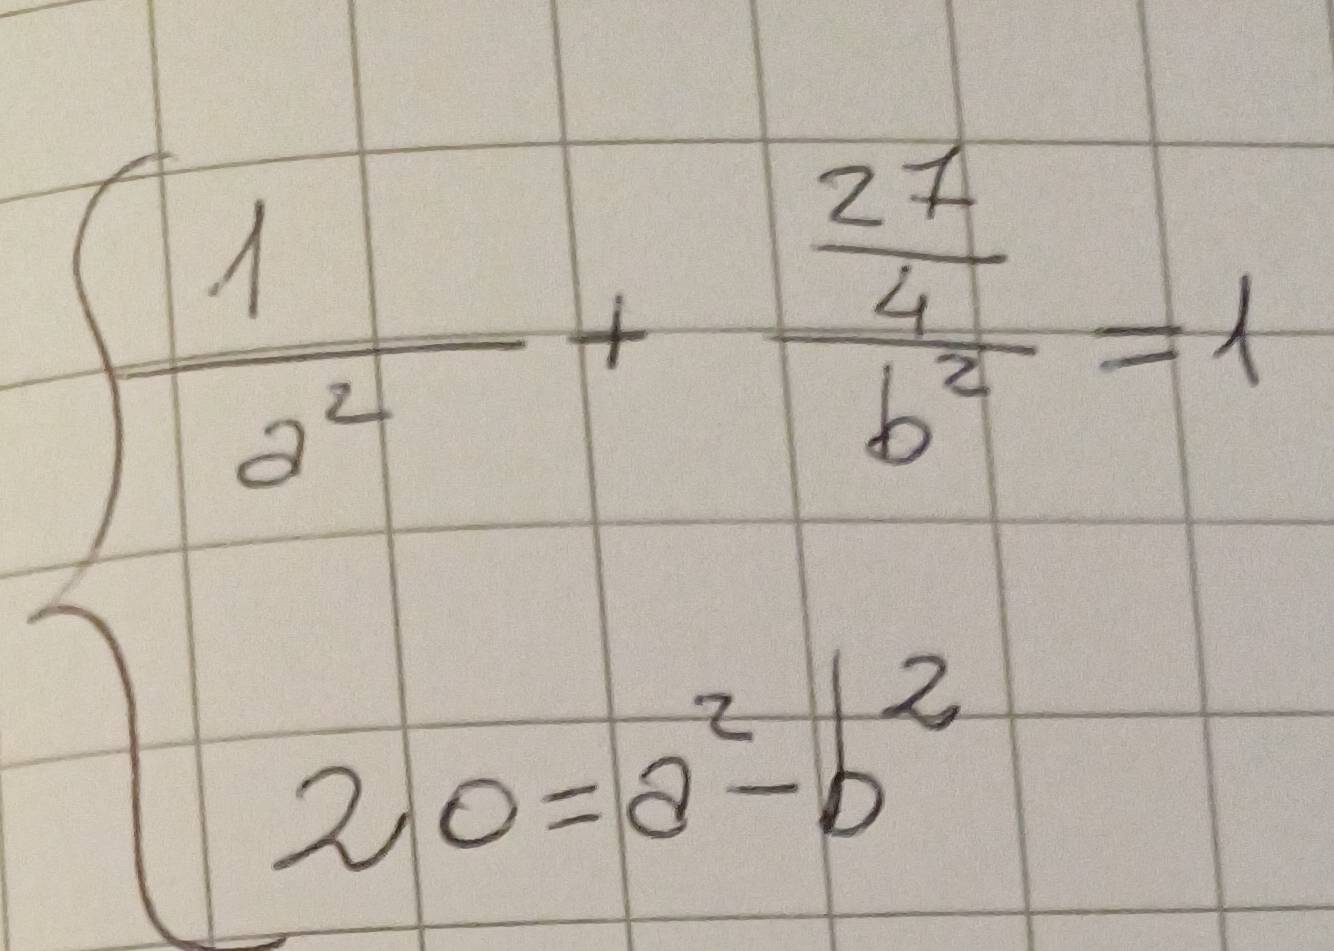 1/a² + (27/4)/b² = 1
20 = a² - b²